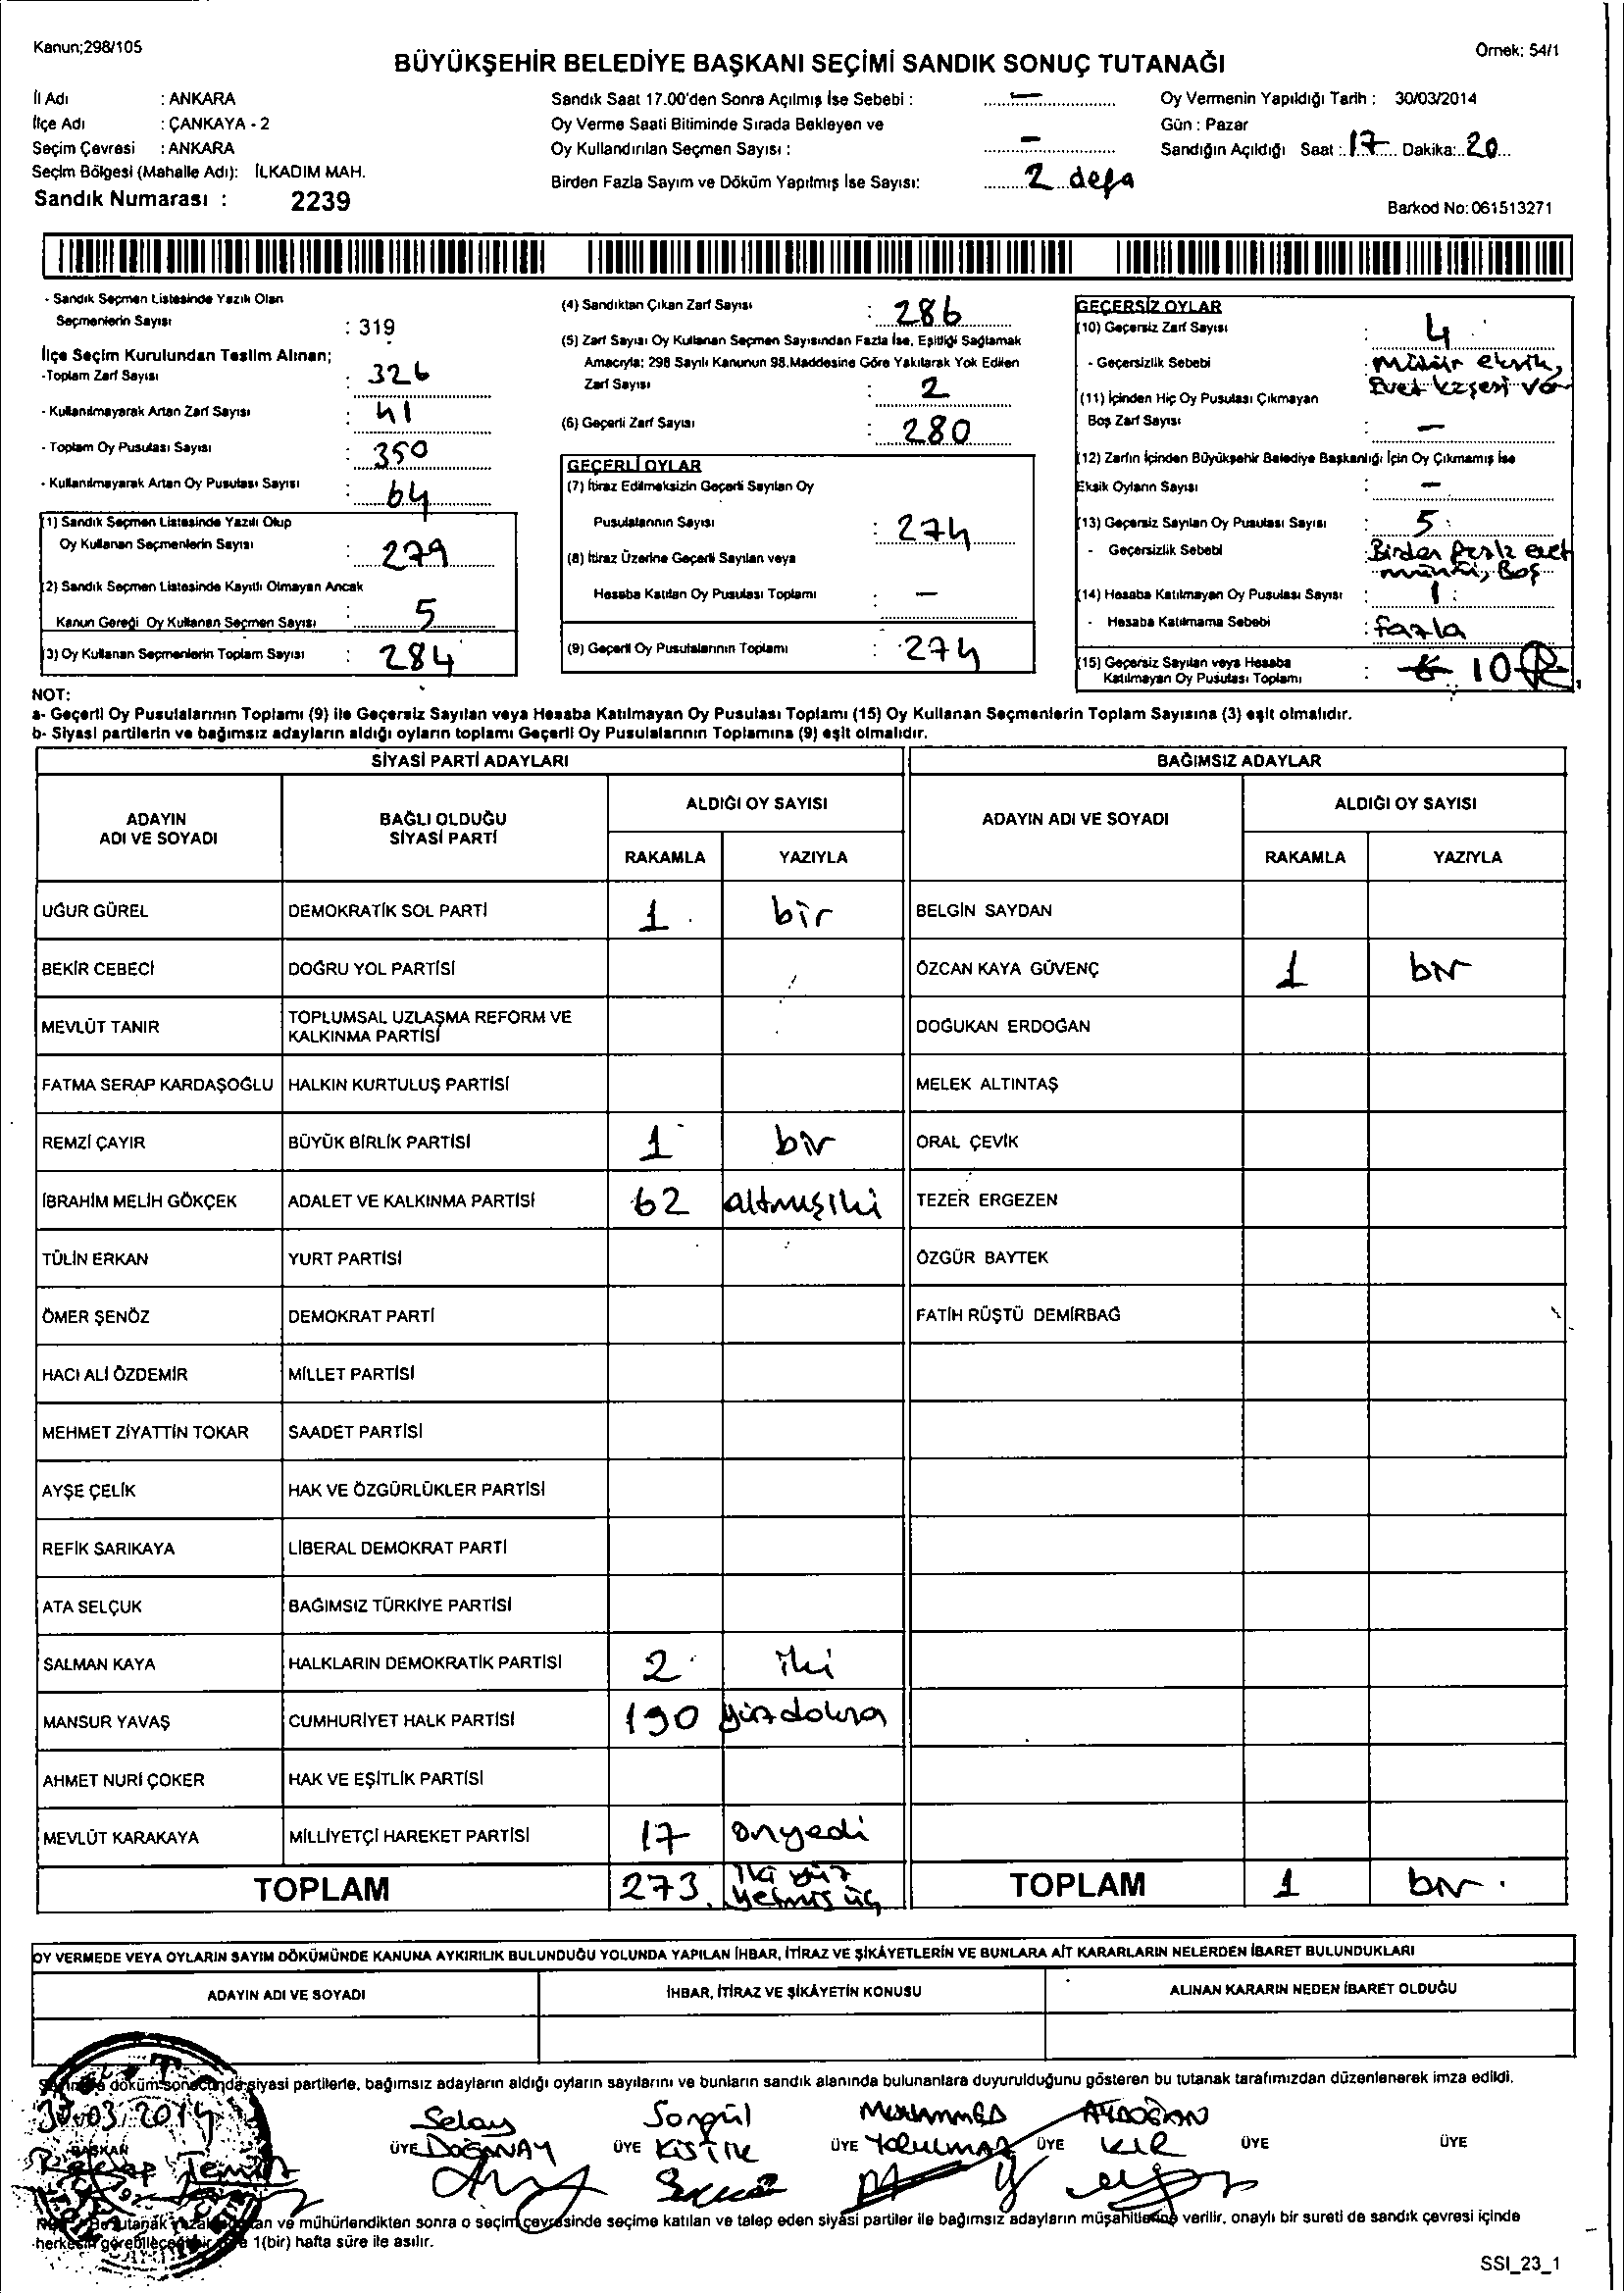 Kanun;298/105
Örnek: 54/1
BÜYÜKŞEHİR BELEDİYE BAŞKANI SEÇİMİ SANDIK SONUÇ TUTANAĞI
İl Adı : ANKARA
İlçe Adı : ÇANKAYA - 2
Seçim Çevresi : ANKARA
Seçim Bölgesi (Mahalle Adı): İLKADIM MAH.
Sandık Numarası : 2239
Sandık Saat 17.00'den Sonra Açılmış İse Sebebi : —
Oy Verme Saati Bitiminde Sırada Bekleyen ve
Oy Kullandırılan Seçmen Sayısı : —
Birden Fazla Sayım ve Döküm Yapılmış İse Sayısı: 2 defa
Oy Vermenin Yapıldığı Tarih : 30/03/2014
Gün : Pazar
Sandığın Açıldığı Saat : 17 Dakika: 20
Barkod No: 061513271
- Sandık Seçmen Listesinde Yazılı Olan
Seçmenlerin Sayısı : 319
İlçe Seçim Kurulundan Teslim Alınan;
-Toplam Zarf Sayısı : 326
- Kullanılmayarak Artan Zarf Sayısı : 41
- Toplam Oy Pusulası Sayısı : 350
- Kullanılmayarak Artan Oy Pusulası Sayısı : 64
(1) Sandık Seçmen Listesinde Yazılı Olup
Oy Kullanan Seçmenlerin Sayısı : 279
(2) Sandık Seçmen Listesinde Kayıtlı Olmayan Ancak
Kanun Gereği Oy Kullanan Seçmen Sayısı : 5
(3) Oy Kullanan Seçmenlerin Toplam Sayısı : 284
(4) Sandıktan Çıkan Zarf Sayısı : 286
(5) Zarf Sayısı Oy Kullanan Seçmen Sayısından Fazla İse, Eşitliği Sağlamak
Amacıyla; 298 Sayılı Kanunun 98.Maddesine Göre Yakılarak Yok Edilen
Zarf Sayısı : 2
(6) Geçerli Zarf Sayısı : 280
GEÇERLİ OYLAR
(7) İtiraz Edilmeksizin Geçerli Sayılan Oy
Pusulalarının Sayısı : 274
(8) İtiraz Üzerine Geçerli Sayılan veya
Hesaba Katılan Oy Pusulası Toplamı : —
(9) Geçerli Oy Pusulalarının Toplamı : 274
GEÇERSİZ OYLAR
(10) Geçersiz Zarf Sayısı : 4
- Geçersizlik Sebebi : mühür eksik,
Evet kaşesi var
(11) İçinden Hiç Oy Pusulası Çıkmayan
Boş Zarf Sayısı : —
(12) Zarfın İçinden Büyükşehir Belediye Başkanlığı İçin Oy Çıkmamış İse
Eksik Oyların Sayısı : —
(13) Geçersiz Sayılan Oy Pusulası Sayısı : 5
- Geçersizlik Sebebi : Birden fazla evet
mührü, Boş
(14) Hesaba Katılmayan Oy Pusulası Sayısı : 1
- Hesaba Katılmama Sebebi : fazla
(15) Geçersiz Sayılan veya Hesaba
Katılmayan Oy Pusulası Toplamı : 10
NOT:
a- Geçerli Oy Pusulalarının Toplamı (9) ile Geçersiz Sayılan veya Hesaba Katılmayan Oy Pusulası Toplamı (15) Oy Kullanan Seçmenlerin Toplam Sayısına (3) eşit olmalıdır.
b- Siyasi partilerin ve bağımsız adayların aldığı oyların toplamı Geçerli Oy Pusulalarının Toplamına (9) eşit olmalıdır.
SİYASİ PARTİ ADAYLARI BAĞIMSIZ ADAYLAR
ADAYIN ADI VE SOYADI BAĞLI OLDUĞU SİYASİ PARTİ ALDIĞI OY SAYISI ADAYIN ADI VE SOYADI ALDIĞI OY SAYISI
RAKAMLA YAZIYLA RAKAMLA YAZIYLA
UĞUR GÜREL DEMOKRATİK SOL PARTİ 1 bir BELGİN SAYDAN
BEKİR CEBECİ DOĞRU YOL PARTİSİ ÖZCAN KAYA GÜVENÇ 1 bir
MEVLÜT TANIR TOPLUMSAL UZLAŞMA REFORM VE KALKINMA PARTİSİ DOĞUKAN ERDOĞAN
FATMA SERAP KARDAŞOĞLU HALKIN KURTULUŞ PARTİSİ MELEK ALTINTAŞ
REMZİ ÇAYIR BÜYÜK BİRLİK PARTİSİ 1 bir ORAL ÇEVİK
İBRAHİM MELİH GÖKÇEK ADALET VE KALKINMA PARTİSİ 62 altmışiki TEZER ERGEZEN
TÜLİN ERKAN YURT PARTİSİ ÖZGÜR BAYTEK
ÖMER ŞENÖZ DEMOKRAT PARTİ FATİH RÜŞTÜ DEMİRBAĞ
HACI ALİ ÖZDEMİR MİLLET PARTİSİ
MEHMET ZİYATTİN TOKAR SAADET PARTİSİ
AYŞE ÇELİK HAK VE ÖZGÜRLÜKLER PARTİSİ
REFİK SARIKAYA LİBERAL DEMOKRAT PARTİ
ATA SELÇUK BAĞIMSIZ TÜRKİYE PARTİSİ
SALMAN KAYA HALKLARIN DEMOKRATİK PARTİSİ 2 iki
MANSUR YAVAŞ CUMHURİYET HALK PARTİSİ 190 yüzdoksan
AHMET NURİ ÇOKER HAK VE EŞİTLİK PARTİSİ
MEVLÜT KARAKAYA MİLLİYETÇİ HAREKET PARTİSİ 17 onyedi
TOPLAM 273 iki yüz yetmiş üç TOPLAM 1 bir
OY VERMEDE VEYA OYLARIN SAYIM DÖKÜMÜNDE KANUNA AYKIRILIK BULUNDUĞU YOLUNDA YAPILAN İHBAR, İTİRAZ VE ŞİKÂYETLERİN VE BUNLARA AİT KARARLARIN NELERDEN İBARET BULUNDUKLARI
ADAYIN ADI VE SOYADI İHBAR, İTİRAZ VE ŞİKÂYETİN KONUSU ALINAN KARARIN NEDEN İBARET OLDUĞU
döküm sonucunda siyasi partilerle, bağımsız adayların aldığı oyların sayılarını ve bunların sandık alanında bulunanlara duyurulduğunu gösteren bu tutanak tarafımızdan düzenlenerek imza edildi.
30.03.2014
BAŞKAN
Recep Temir
Selay ÜYE DOĞANAY
Songül ÜYE KISTIK
Muhammed ÜYE YORULMAZ
AYDOĞAN ÜYE KIR
ÜYE
ÜYE
Bu tutanak ve mühürlendikten sonra o seçim çevresinde seçime katılan ve talep eden siyasi partiler ile bağımsız adayların müşahitlerine verilir, onaylı bir sureti de sandık çevresi içinde
herkesin görebileceği bir yere 1(bir) hafta süre ile asılır.
SSI_23_1